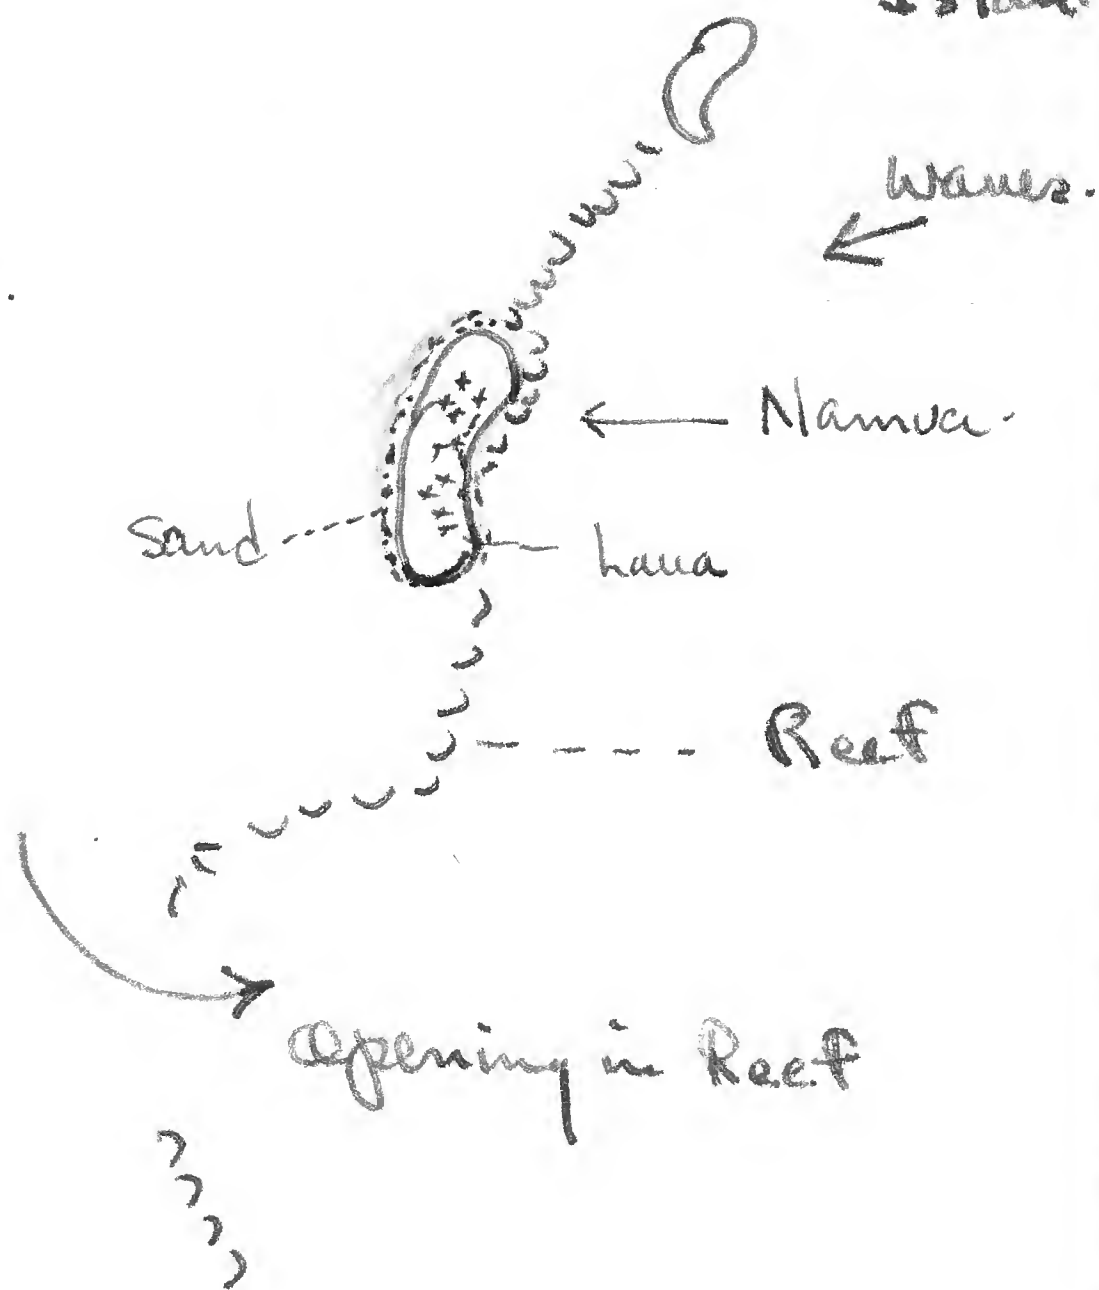 Waves.
Namua.
Sand
Lava
Reef
Opening in Reef